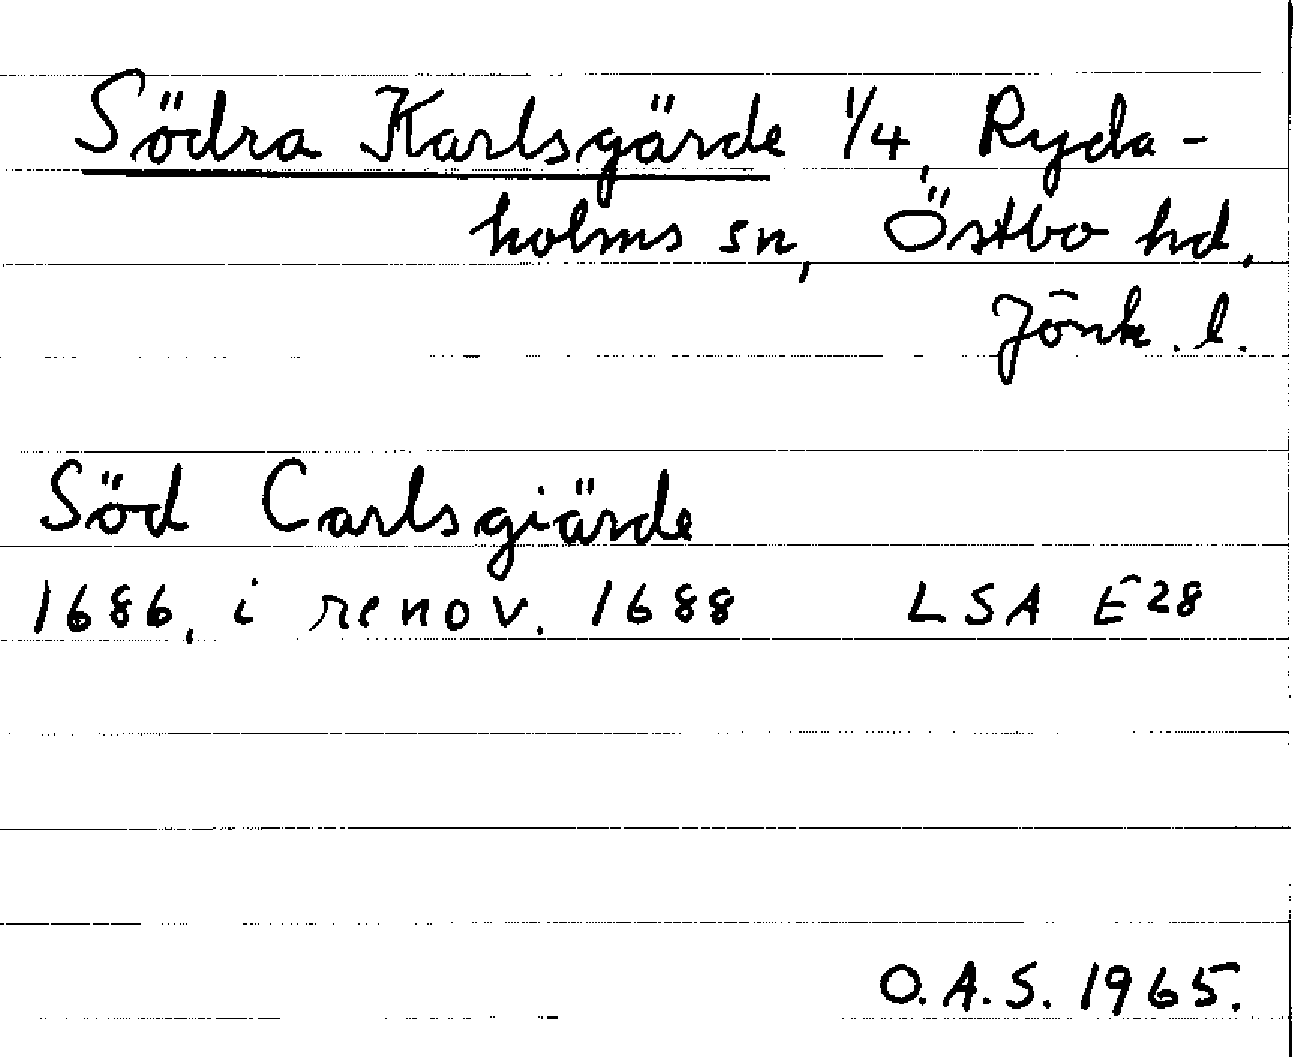 Södra Karlsgärde 1/4, Ryda-
holms sn, Östbo hd,
Jönk. l.
Söd Carlsgiärde
1686, i renov. 1688 LSA E28
O.A.S. 1965.